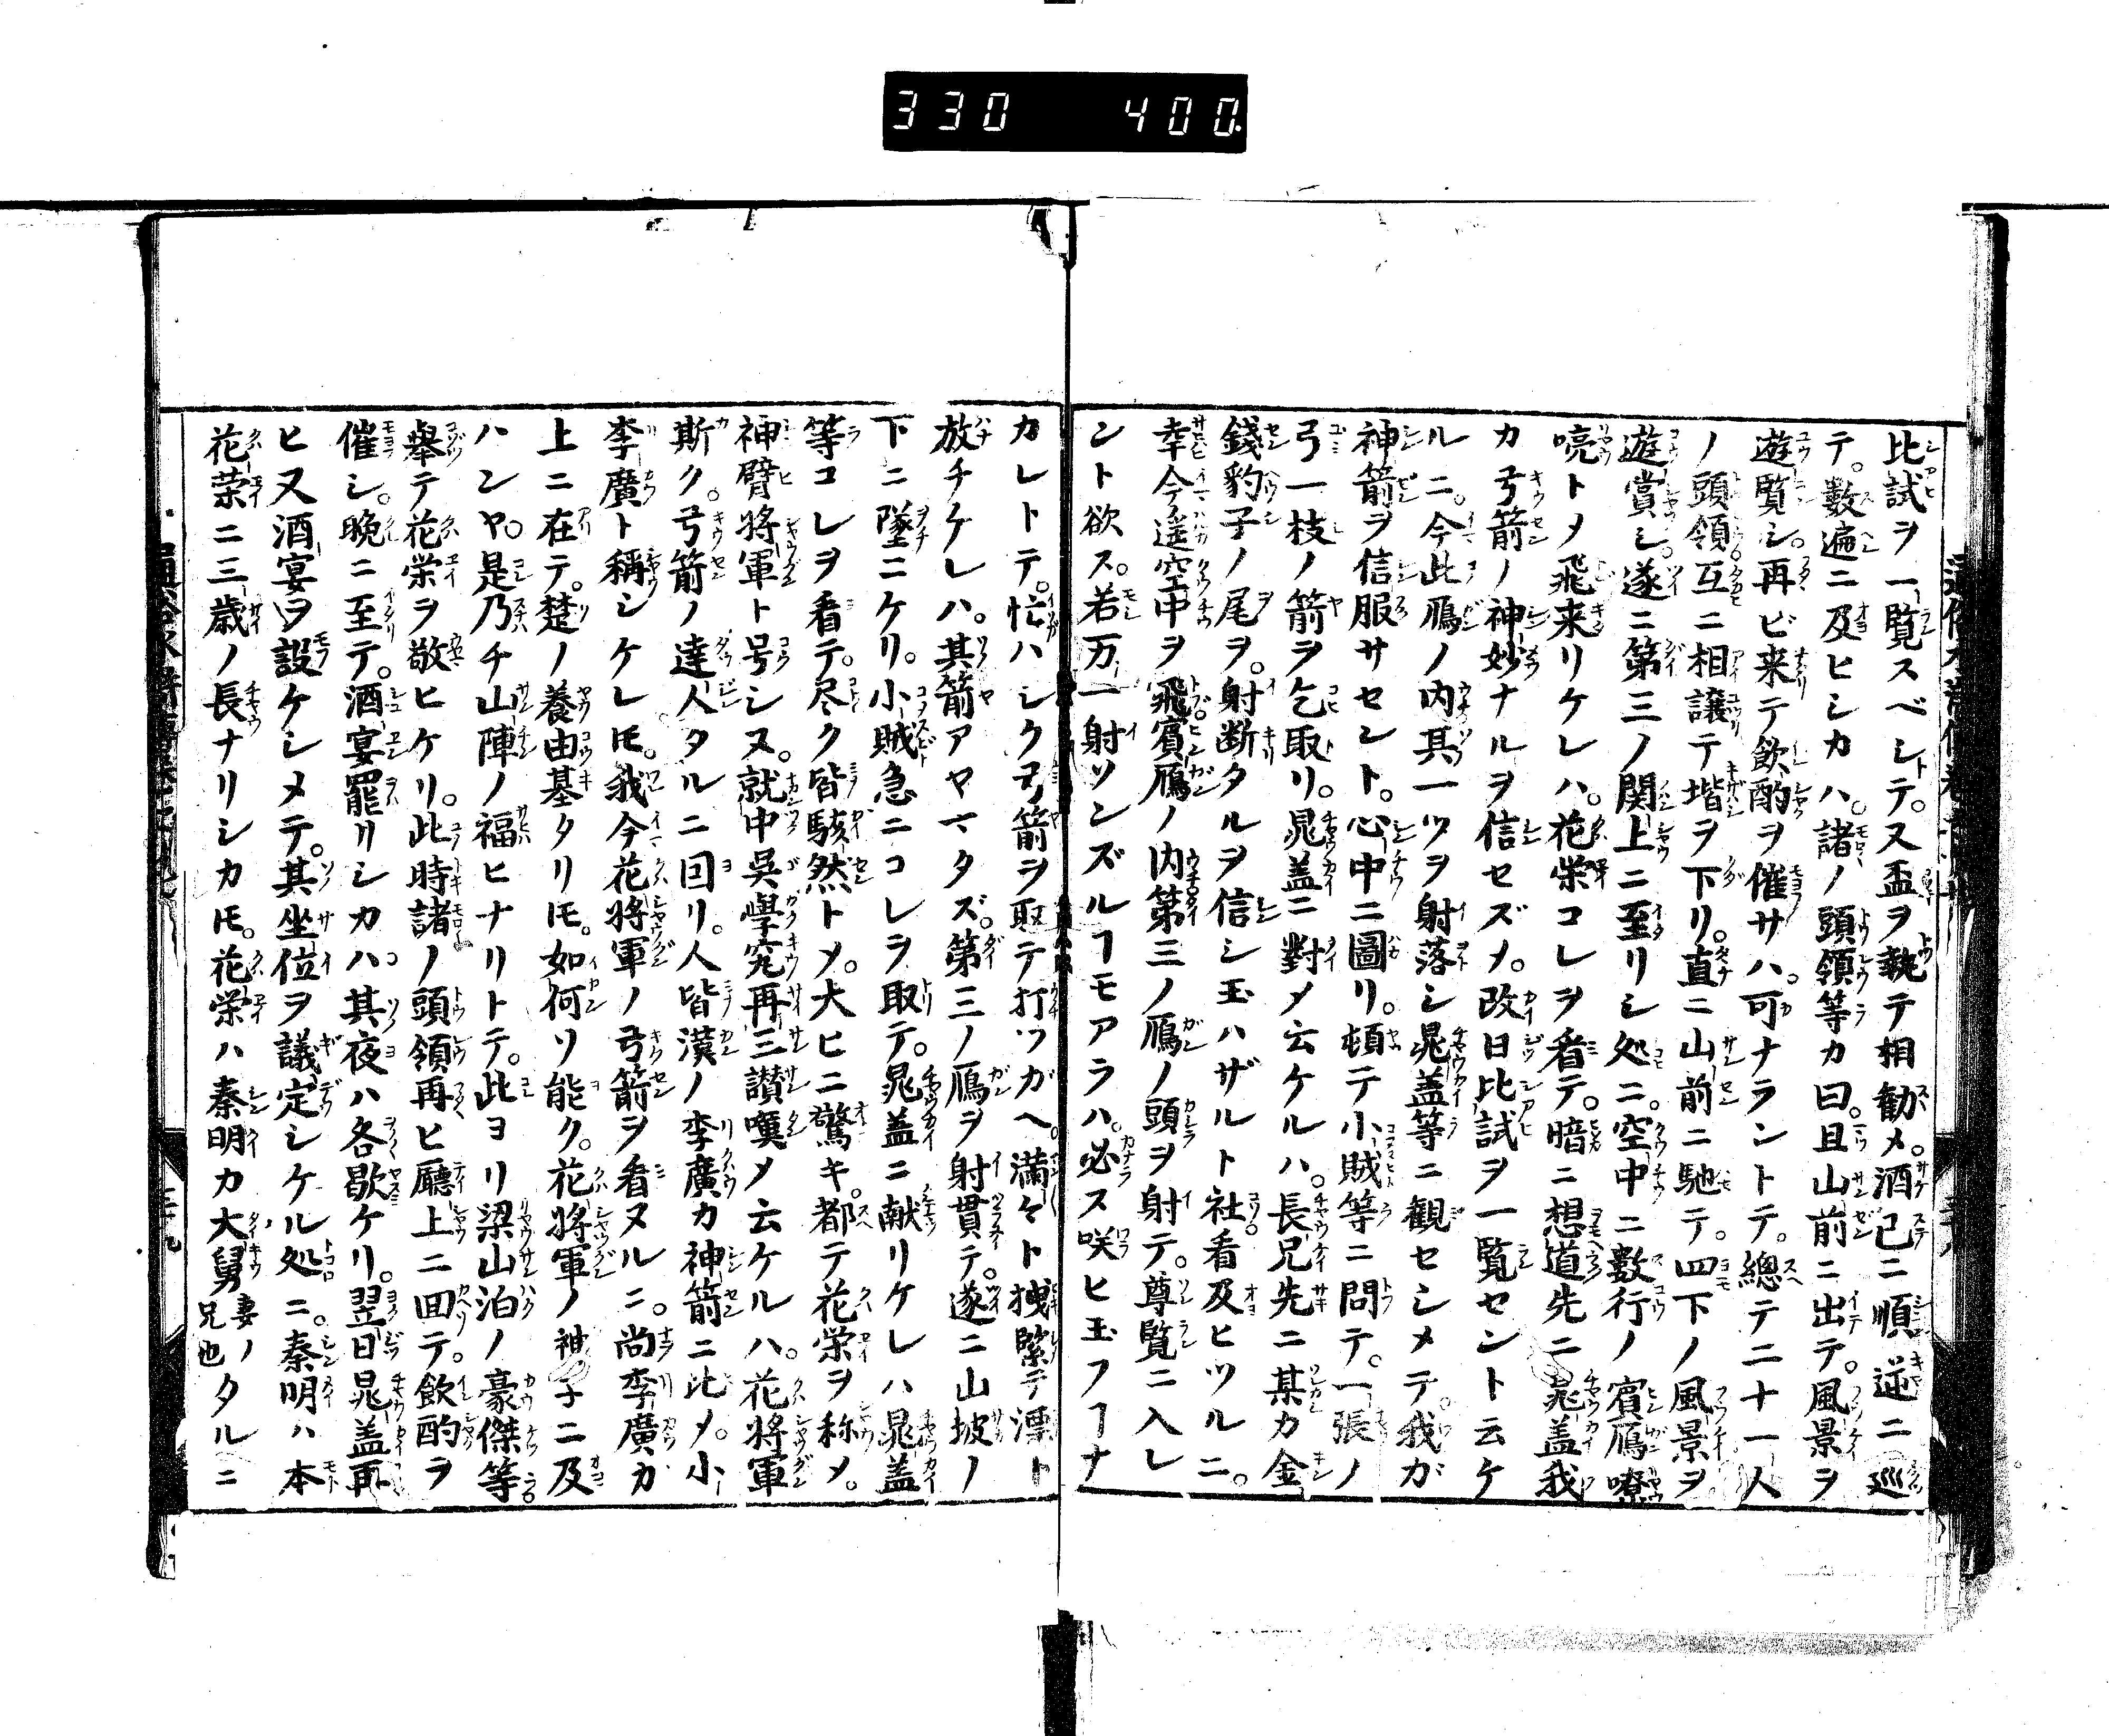 330 400
比試ヲ一覧スベシトテ。又盃ヲ執テ相勧メ。酒已ニ順逆ニ巡
テ。數遍ニ及ヒシカハ。諸ノ頭領等カ曰。且山前ニ出テ。風景ヲ
遊覧シ。再ビ来テ飲酌ヲ催サハ。可ナラントテ。總テ二十一人
ノ頭領互ニ相譲テ堦ヲ下リ。直ニ山前ニ馳テ。四下ノ風景ヲ
遊賞シ。遂ニ第三ノ関上ニ至リシ処ニ。空中ニ數行ノ賓鴈嘹
喨トメ飛来リケレハ。花栄コレヲ看テ。暗ニ想道先ニ晁盖我
カ弓箭ノ神妙ナルヲ信セズメ。改日比試ヲ一覧セント云ケ
ルニ。今此鴈ノ内其一ツヲ射落シ晁盖等ニ観セシメテ。我ガ
神箭ヲ信服サセント。心中ニ圖リ。頓テ小賊等ニ問テ。一張ノ
弓一枝ノ箭ヲ乞取リ。晁盖ニ對メ云ケルハ。長兄先ニ某カ金
錢豹子ノ尾ヲ。射断タルヲ信シ玉ハザルト社看及ヒツルニ。
幸今遥空中ヲ飛賓鴈ノ内第三ノ鴈ノ頭ヲ射テ。尊覧ニ入レ
ント欲ス。若万一射ソンズルヿモアラハ。必ス咲ヒ玉フヿナ
カレトテ。忙ハシク弓箭ヲ取テ打ツガヘ。満々ト拽緊テ漂ト
放チケレハ。其箭アヤマタズ。第三ノ鴈ヲ射貫テ。遂ニ山坡ノ
下ニ墜ニケリ。小賊急ニコレヲ取テ。晁盖ニ献リケレハ晁盖
等コレヲ看テ。尽ク皆駭然トメ。大ヒニ驚キ。都テ花栄ヲ称メ。
神臂將軍ト号シヌ。就中吳學究再三讃嘆メ云ケルハ。花將軍
斯ク。弓箭ノ達人タルニ因リ。人皆漢ノ李廣カ神箭ニ比メ。小
李廣ト稱シケレ𪜈。我今花將軍ノ弓箭ヲ看ヌルニ。尚李廣カ
上ニ在テ。楚ノ養由基タリ𪜈。如何ソ能ク。花將軍ノ神手ニ及
ハンヤ。是乃チ山陣ノ福ヒナリトテ。此ヨリ梁山泊ノ豪傑等
舉テ花栄ヲ敬ヒケリ。此時諸ノ頭領再ヒ廳上ニ回テ。飲酌ヲ
催シ。晩ニ至テ。酒宴罷リシカハ。其夜ハ各歇ケリ。翌日晁盖再
ヒ又酒宴ヲ設ケシメテ。其坐位ヲ議定シケル処ニ。秦明ハ本
花栄ニ三歳ノ長ナリシカ𪜈。花栄ハ秦明カ大舅妻ノ兄也タルニ